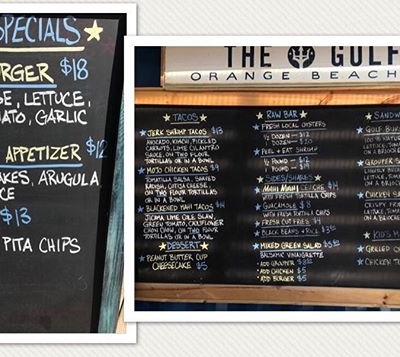 SPECIALS
RGER $18
SE, LETTUCE,
ATO, GARLIC
APPETIZER $12
AKES, ARUGULA
CE
$13
PITA CHIPS
THE GULF
ORANGE BEACH
TACOS
JERK SHRIMP TACOS $13
AVOCADO, PICKLED
CARROTS, LIME CILANTRO
SAUCE, ON TWO FLOUR
TORTILLAS OR IN A BOWL
MOJO CHICKEN TACOS
TOMATILLO SALSA, SHAVED
RADISH, COTIJA CHEESE,
ON TWO FLOUR
TORTILLAS OR IN A BOWL
BLACKENED MAHI TACOS $14
JICAMA LIME SLAW,
GREEN TOMATO, CAULIFLOWER
CHOW CHOW, ON TWO FLOUR
TORTILLAS OR IN A BOWL
DESSERT
PEANUT BUTTER CUP
CHEESECAKE $5
RAW BAR
FRESH LOCAL OYSTERS
1/2 DOZEN $12
1 DOZEN
PEEL & EAT SHRIMP
1/2 POUND
1 POUND
SIDES/SHARES
MAHI MAHI CEVICHE $14
WITH FRESH TORTILLA CHIPS
GUACAMOLE $8
WITH FRESH TORTILLA CHIPS
FRESH CUT FRIES $4
BLACK BEANS & RICE
MIXED GREEN SALAD
BALSAMIC VINAIGRETTE
ADD GROUPER
ADD CHICKEN $5
ADD BURGER $5
SANDW
GULF BURG
ON A BRIOCH
GROUPER S
CHICKEN SA
CRISPY FR
ON A BRIOC
KID'S M
GRILLED C
CHICKEN T